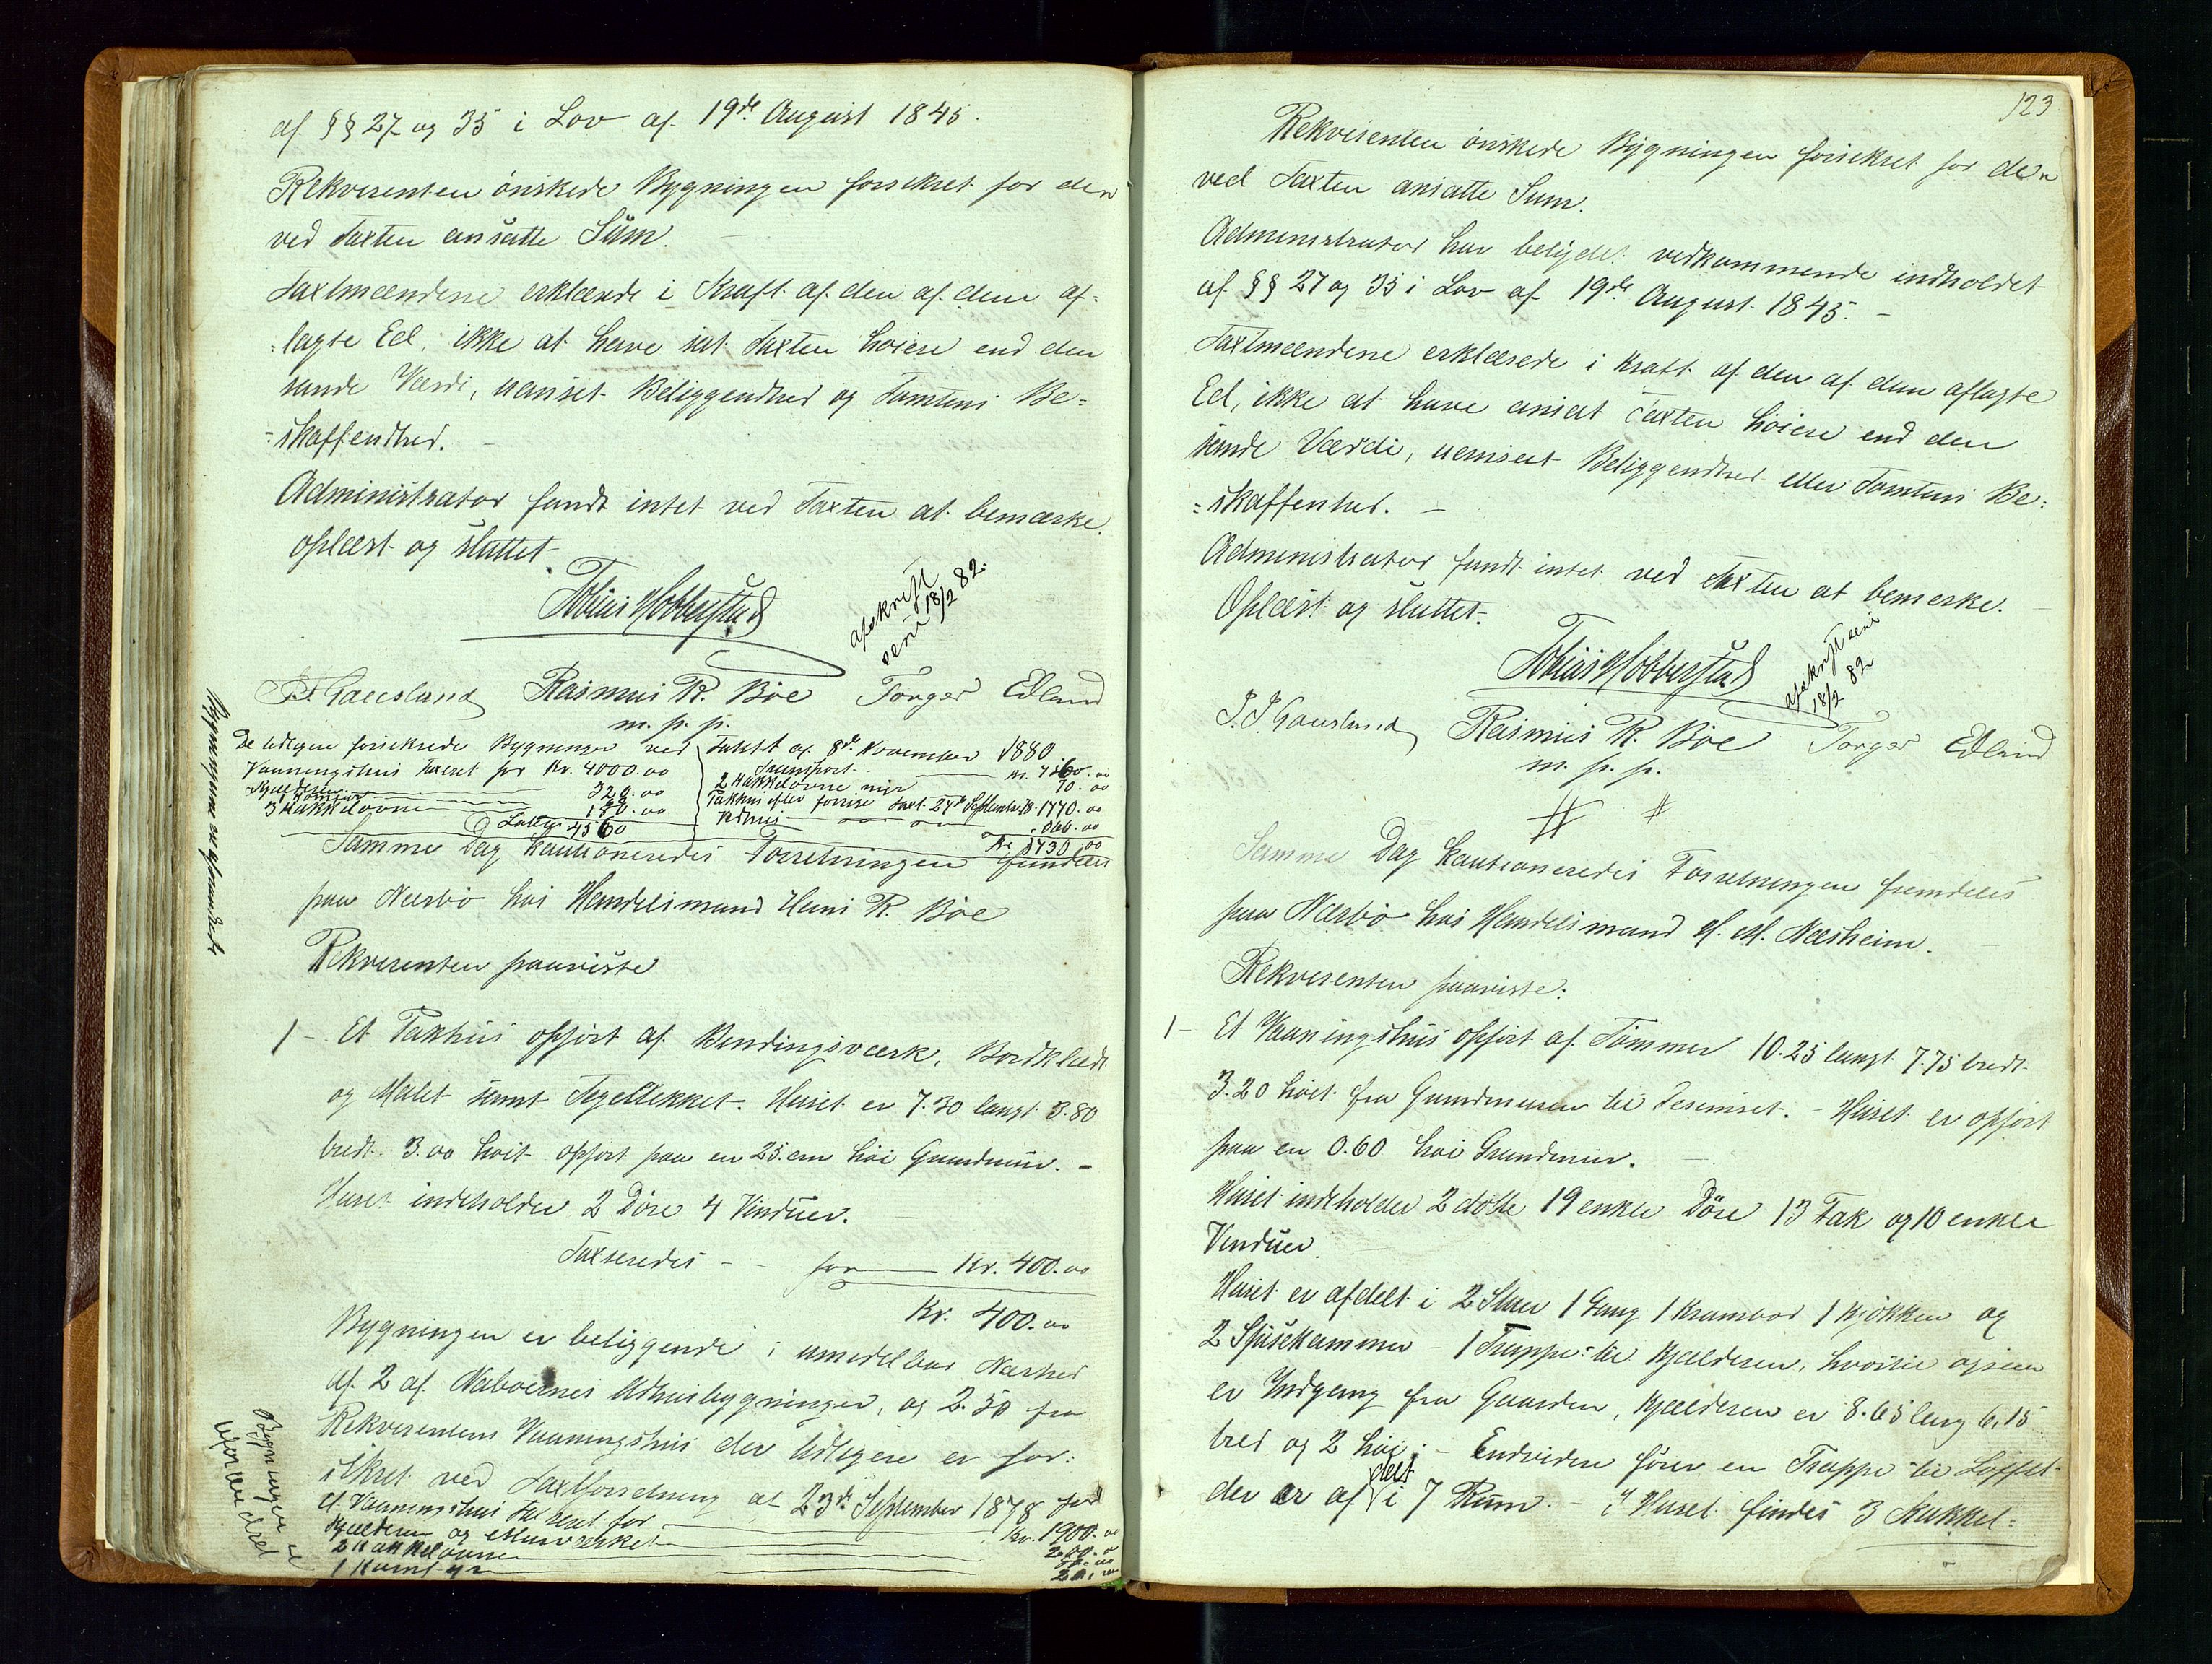 af §§ 27 og 35 i Lov af 19de August 1845.
Rekvirenten ønskede Bygningen forsikret for den
ved Taxten ansatte Sum.
Taxtmændene erklærede i Kraft af den af dem af-
lagte Ed, ikke at have sat Taxten høiere end den
sande Værdi, uanset Beliggendhed og Tomtens Be=
=skaffendhed.
Administrator fandt intet ved Taxten at bemærke.
Oplæst og sluttet.
Tobias Hobberstad
afskrift
sen 18/2 82.
Gausland Rasmus R. Bøe Torger Edland
m. p. p.
De tidligere forsikrede Bygninger ved Taxt af 8de November 1880
Vaaningshus taxeret for Kr. 4000.00
Kjælderen 320.00
3 Kakkelovne 180.00
Latus 4560
Transport Kr. 4560.00
2 Kakkelovne nye 70.00
Pakhus efter forrige Taxt 24de Septembr 78 1770.00
Vedhus
Bygningerne ere uforandret
Samme Dag kautioneredes Forretningen fremdeles
paa Nærbø hos Handelsmand Hans R. Bøe
Rekvirenten paaviste
1 - Et Pakhus opført af Bindingsværk, Bordklædt
og Malet samt Tegeltækket. Huset er 7.30 langt 3.80
bredt 3.00 høit opført paa en 25.cm høi Grundmur. -
Huset indeholder 2 Döre 4 Vinduer.
Taxseredes - - for Kr. 400.00
Kr. 400.00
Bygningen er beliggende i umedelbar Nærhed
af 2 af Naboernes Udhusbygninger, og 2.50 fra
Rekvirentens Vaaningshus der tidligere er for-
sikret ved Taxtforretning af 23de September 1878 for
et Vaaningshus taxeret for Kr. 1900.00
Kjælderen og Murværket 200.00
2 Kakkelovne
1 Komfyr
Bygningen er
uforandret
123
Rekvirenten ønskede Bygningen forsikret for den
ved Taxten ansatte Sum.
Administrator har betydet vedkommende indholdet
af §§ 27 og 35 i Lov af 19de August 1845. -
Taxtmændene erklærede i Kraft af den af dem aflagte
Ed, ikke at have ansat Taxten høiere end den
sande Værdi, uanseet Beliggendhed eller Tomtens Be=
=skaffenhed. -
Administrator fandt intet ved Taxten at bemerke. -
Oplæst og sluttet.
Tobias Hobberstad
afskrift sen
18/2 82
J. J. Gausland Rasmus R. Bøe Torger Edland
m. p. p.
Samme Dag kautioneredes Forretningen fremdeles
paa Nærbø hos Handelsmand H. M. Næsheim.
Rekvirenten paaviste:
1 - Et Vaaningshus opført af Tømmer 10.25 langt 7.75 bredt
3.20 høit fra Grundmuren til Gesemset. - Huset er opført
paa en 0.60 høi Grundmur. -
Huset indeholder 2 dobble 19 enkle Döre 13 Fak og 10 enkle
Vinduer.
Huset er afdelt i 2 Stuer 1 Gang 1 Krambod 1 Kjøkken og
2 Spisekammer - 1 Trappe til Kjælderen, hvortil ogsaa
er Indgang fra Gaarden, Kjælderen er 8.65 lang 6.15
bred og 2 høi; - Endvidere fører en Trappe til Loftet
der er af delt i 7 Rum. - I Huset findes 3 Kakkel-